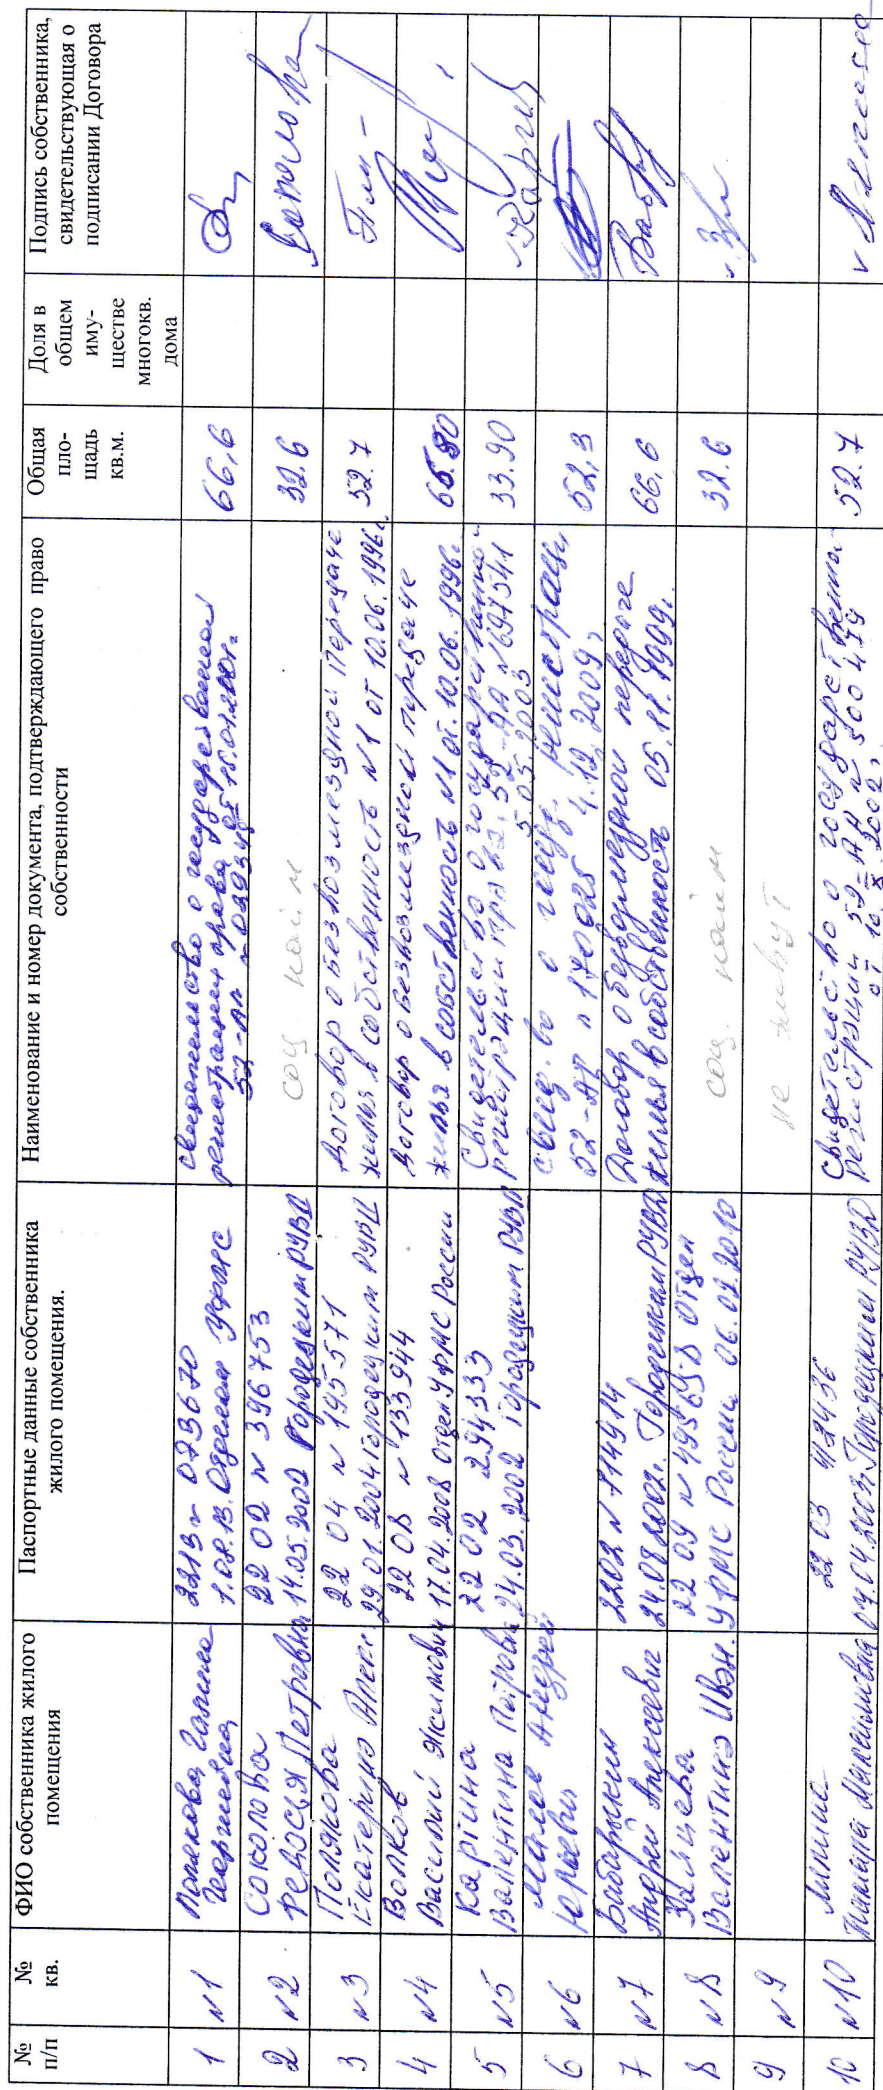 № п/п
№ кв.
ФИО собственника жилого помещения
Паспортные данные собственника жилого помещения.
Наименование и номер документа, подтверждающего право собственности
Общая пло-щадь кв.м.
Доля в общем иму-ществе многокв. дома
Подпись собственника, свидетельствующая о подписании Договора
1 №1
Галина
1.08.13. Отделом УФМС
свидетельство о государственной
регистрации права
66,6
2 №2
Соколова
Федосья Петровна
22 02 № 396753
14.05.2002 Городецким РУВД
соц найм
32.6
3 №3
Полякова
Екатерина Алекс.
22 04 № 195571
29.01.2004 Городецким РУВД
Договор о безвозмездной передаче
жилья в собственность №1 от 10.06.1996г.
52.7
4 №4
Волков
Василий
22 08 № 133944
17.04.2008 Отдел УФМС России
Договор о безвозмездной передаче
жилья в собственность №1 от 10.06.1996г.
5 №5
Каргина
Валентина Петровна
22 02 294333
24.03.2002 Городецким РУВД
Свидетельство о государственной
регистрации права 52-АА №697541
5.05.2003
33.90
Каргин
6 №6
Андрей
Юрьевич
о госуд. регистрации
4.12.2009,
52,3
7 №7
Андрей Алексеевич
24.08.2002. Городецким РУВД
Договор о безвозмездной передаче
жилья в собственность 05.11.1999г.
66,6
8 №8
Зайцева
Валентина Иван.
22 09 № 495695-8 Отдел
УФМС России 06.02.2010
соц. найм
32.6
9 №9
не живут
10 №10
22 03 412436
07.04.2003. Городецким РУВД
Свидетельство о государственной
регистрации 52-АА № 500479
от 10.X.2002,
52.7